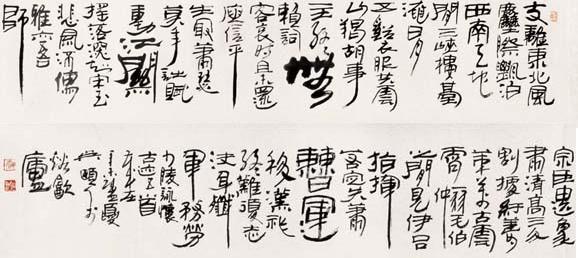 支離東北風
塵際飄泊
西南天地
間三峽樓臺
淹日月
五谿衣服共雲
山羯胡事
主終無
賴詞
客哀時且未還
庾信平
生最蕭瑟
莫年詩賦
動江關
搖落深知宋玉
悲風流儒
雅亦吾
師
宗臣遺象
肅清高三分
割據紆籌
策萬古雲
霄一羽毛伯
仲之
間見伊呂
指揮
若定失蕭
曹運
移漢祚
終難復志
決身殲
軍務勞
少陵詠懷
古迹
廬